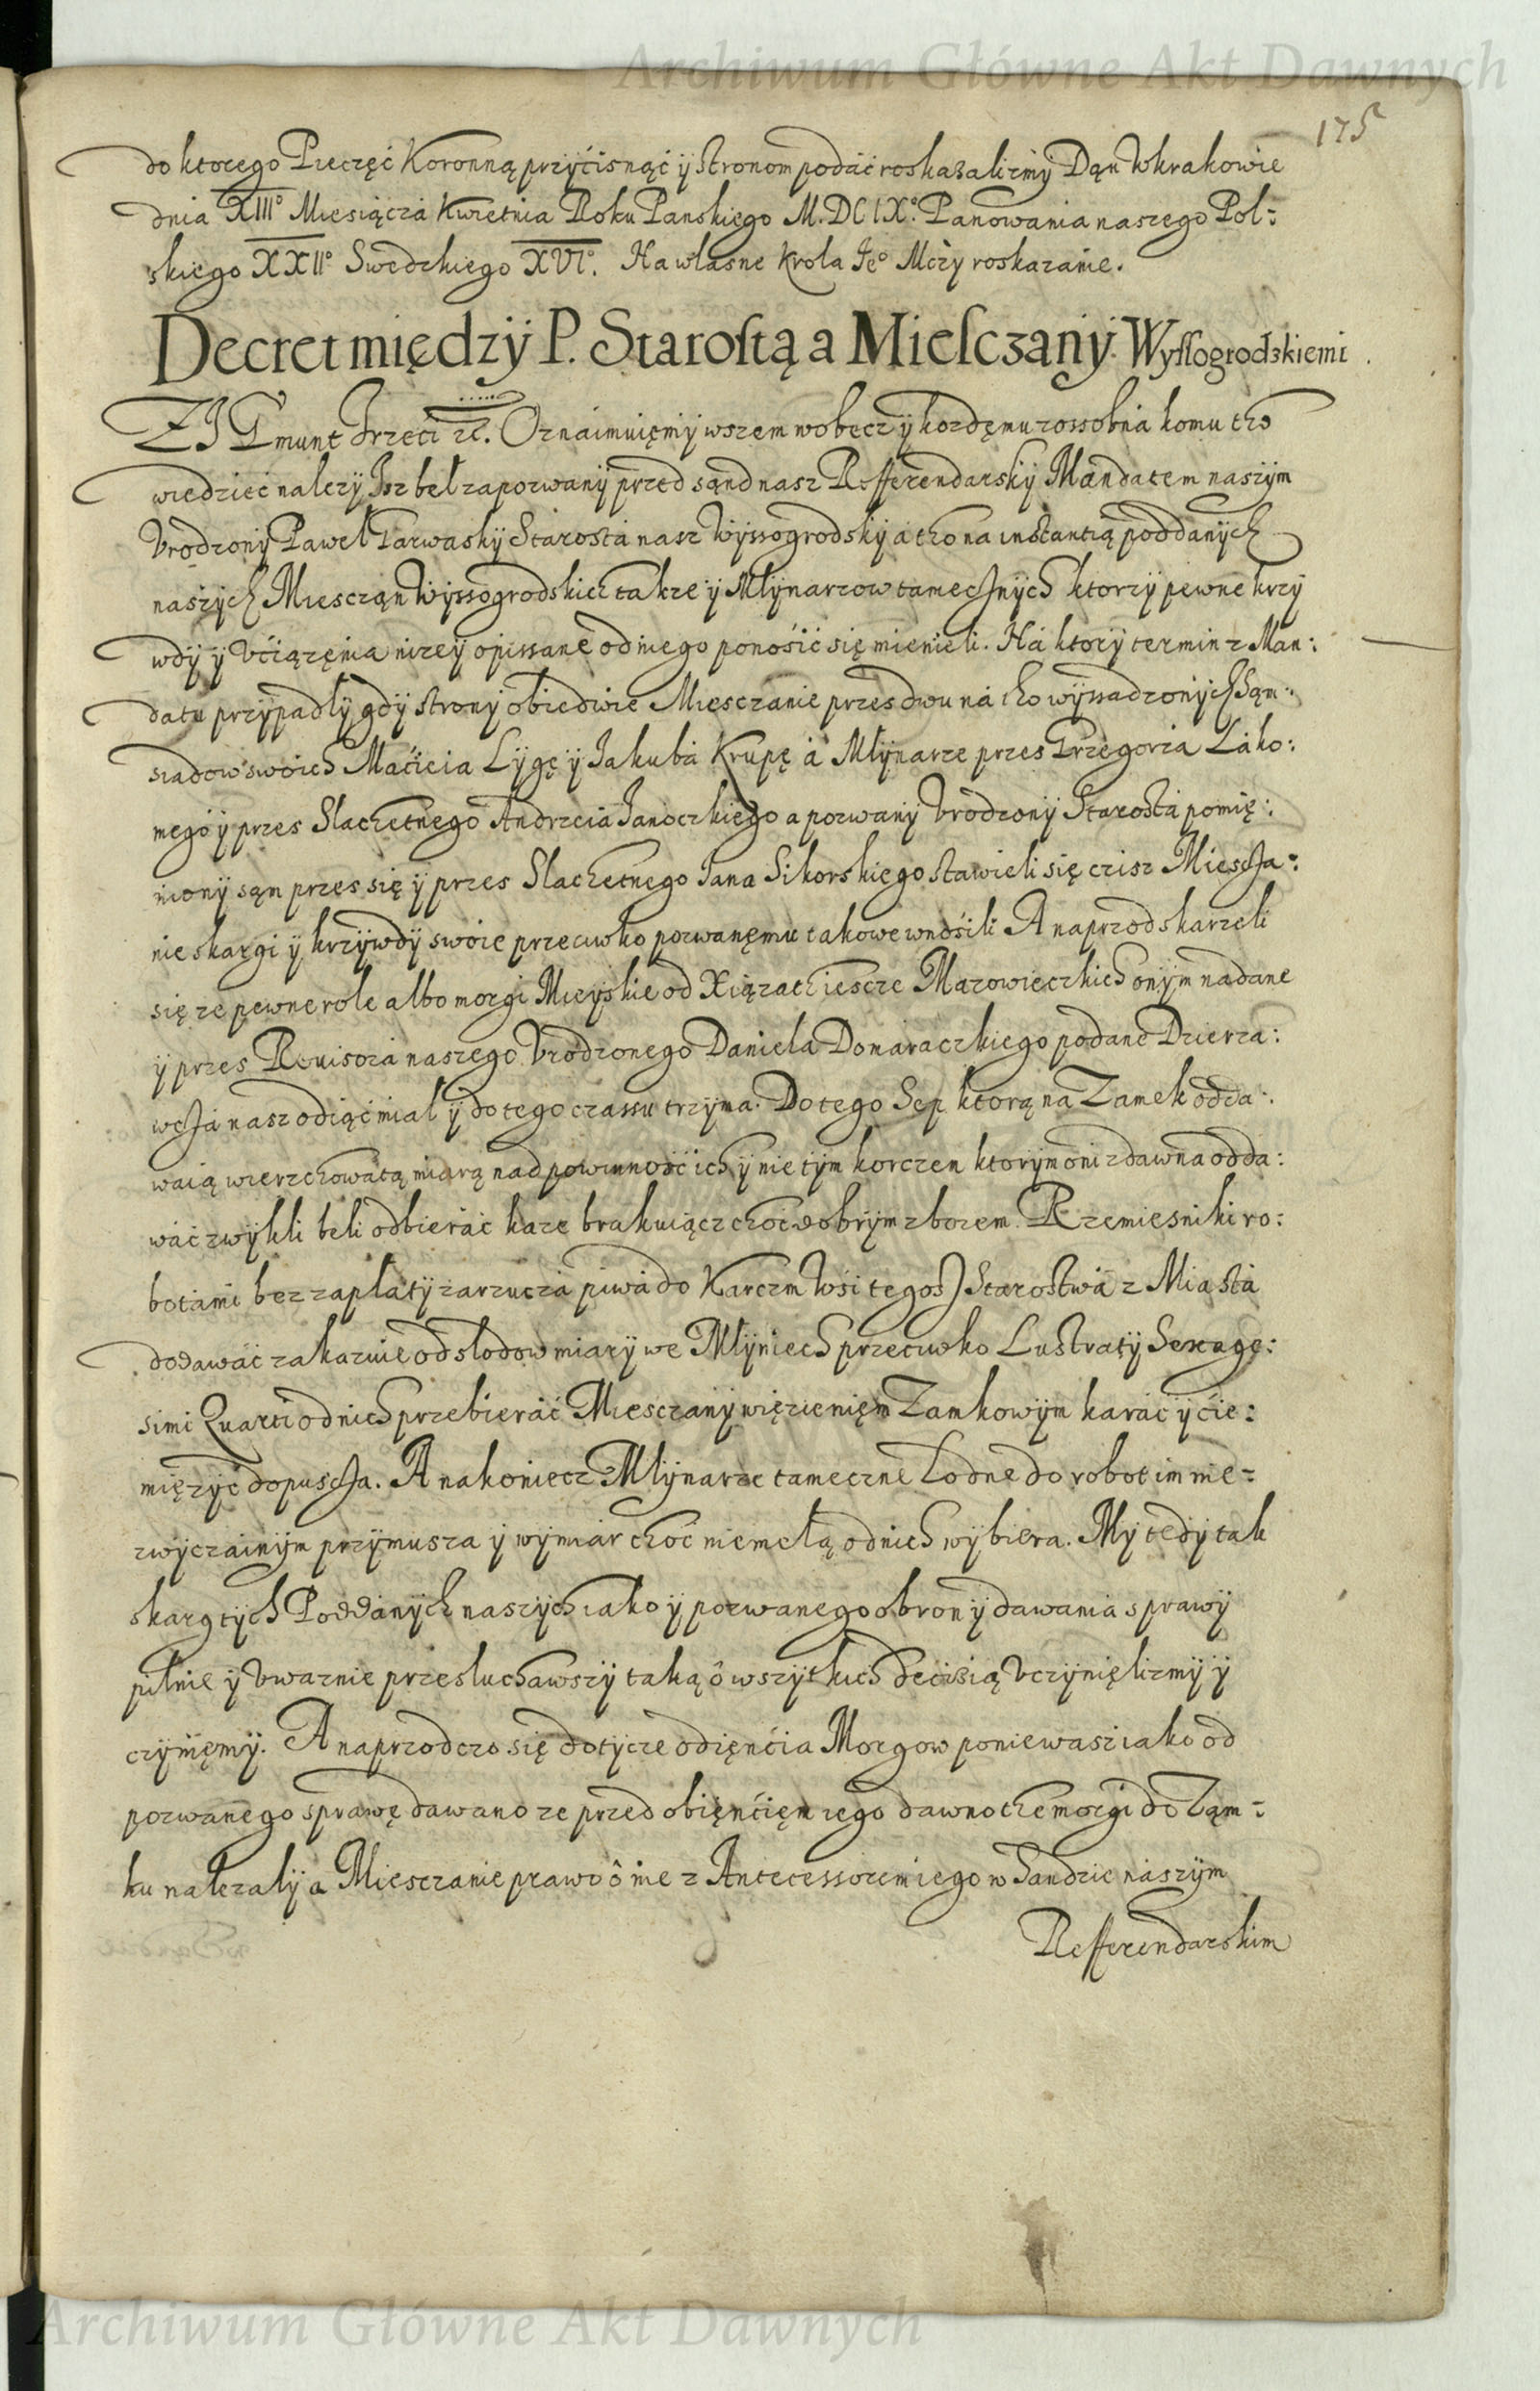 Archiwum Główne Akt Dawnych
175
do ktorego Pieczęć Koronną przyćisnąć ÿ Stronom podać roskazalizmy Dąn Wkrakowie
dnia XIII° Miesiącza Kwietnia Roku Panskiego M.DCIX° Panowania naszego Pol:
skiego XXII° Swedzkiego XVI°. Na własne Krola Je° Mczy roskazanie.
Decret między P. Starostą a Miesczany Wyssogrodzkiemi
ZIGmunt Trzeci rc. Oznaimuięmy wszem wobecz ÿ kozdęmu zossobna komu tho
wiedziec nalezy Isz beł zapozwany przed sąnd nasz Refferendarsky Mandatem naszym
Vrodzony Paweł Garwasky Starosta nasz Wyssogrodsky a tho na instantią poddanych
naszych Miesczan Wyssogrodskich takze ÿ Młynarzow tamecznych ktorzy pewne krzy
wdy ÿ Vćiązęnia nizey opissane od niego ponośić się mienieli. Na ktory termin z Man:
datu przypadły gdy strony obiedwie Miesczanie przes dwu na tho wyssadzonych Sąm:
siadow swoich Maćieia Lygę ÿ Jakuba Krupę a Młynarze przes Grzegorza Łako:
mego ÿ przes Slachetnego Andrzeia Janoczkiego a pozwany Vrodzony Starosta pomię:
niony sąm przes się ÿ przes Slachetnego Jana Sikorskiego stawieli się czisz Miescza:
nie skargi ÿ krzywdy swoie przeciwko pozwanęmu takowe wnośili A naprzod skarzeli
się ze pewne role albo morgi Mieyskie od Xiązath iescze Mazowieczkich onym nadane
ÿ przes Reuisora naszego Vrodzonego Daniela Donaraczkiego podane Dzierza:
wcza nasz odiąć miał ÿ do tego czassu trzyma. Do tego Sep ktorą na Zamek odda:
waią wierzchowatą miarą nad powinność ich ÿ nie tym korczem ktorym oni zdawna odda:
wać zwykli beli odbierać kaze brakuiącz choć dobrym zbozem. Rzemiesniki ro:
botami bez zapłaty zarzucza piwa do Karczm Wsi tegosz Starostwa z Miasta
dodawać zakazuie od słodow miary we Młyniech przeciwko Lustraty Sexage:
simi Quarti od nich przebierać Miesczany więzienięm Zamkowym karać ÿ ćie:
mięzyć dopuscza. A nakoniecz Młynarze tameczne Łodne do robot im nie=
zwyczainym przymusza ÿ wymiar choć niemełą od nich wybiera. My tedy tak
skarg tych Poddanych naszych iako ÿ pozwanego obrony dawania sprawy
pilnie ÿ Vwaznie przesłuchawszy taką o wszytkich decisią Vczynięlizmy ÿ
czynięmy. A naprzod czo się dotycze odięnćia Morgow poniewasz iako od
pozwanego sprawę dawano ze przed obięnćięm iego dawno the morgi do Ząm=
ku nalezały a Miesczanie prawo o nie z Antecessorem iego w Sandzie naszym
Refferendarskim
Archiwum Główne Akt Dawnych